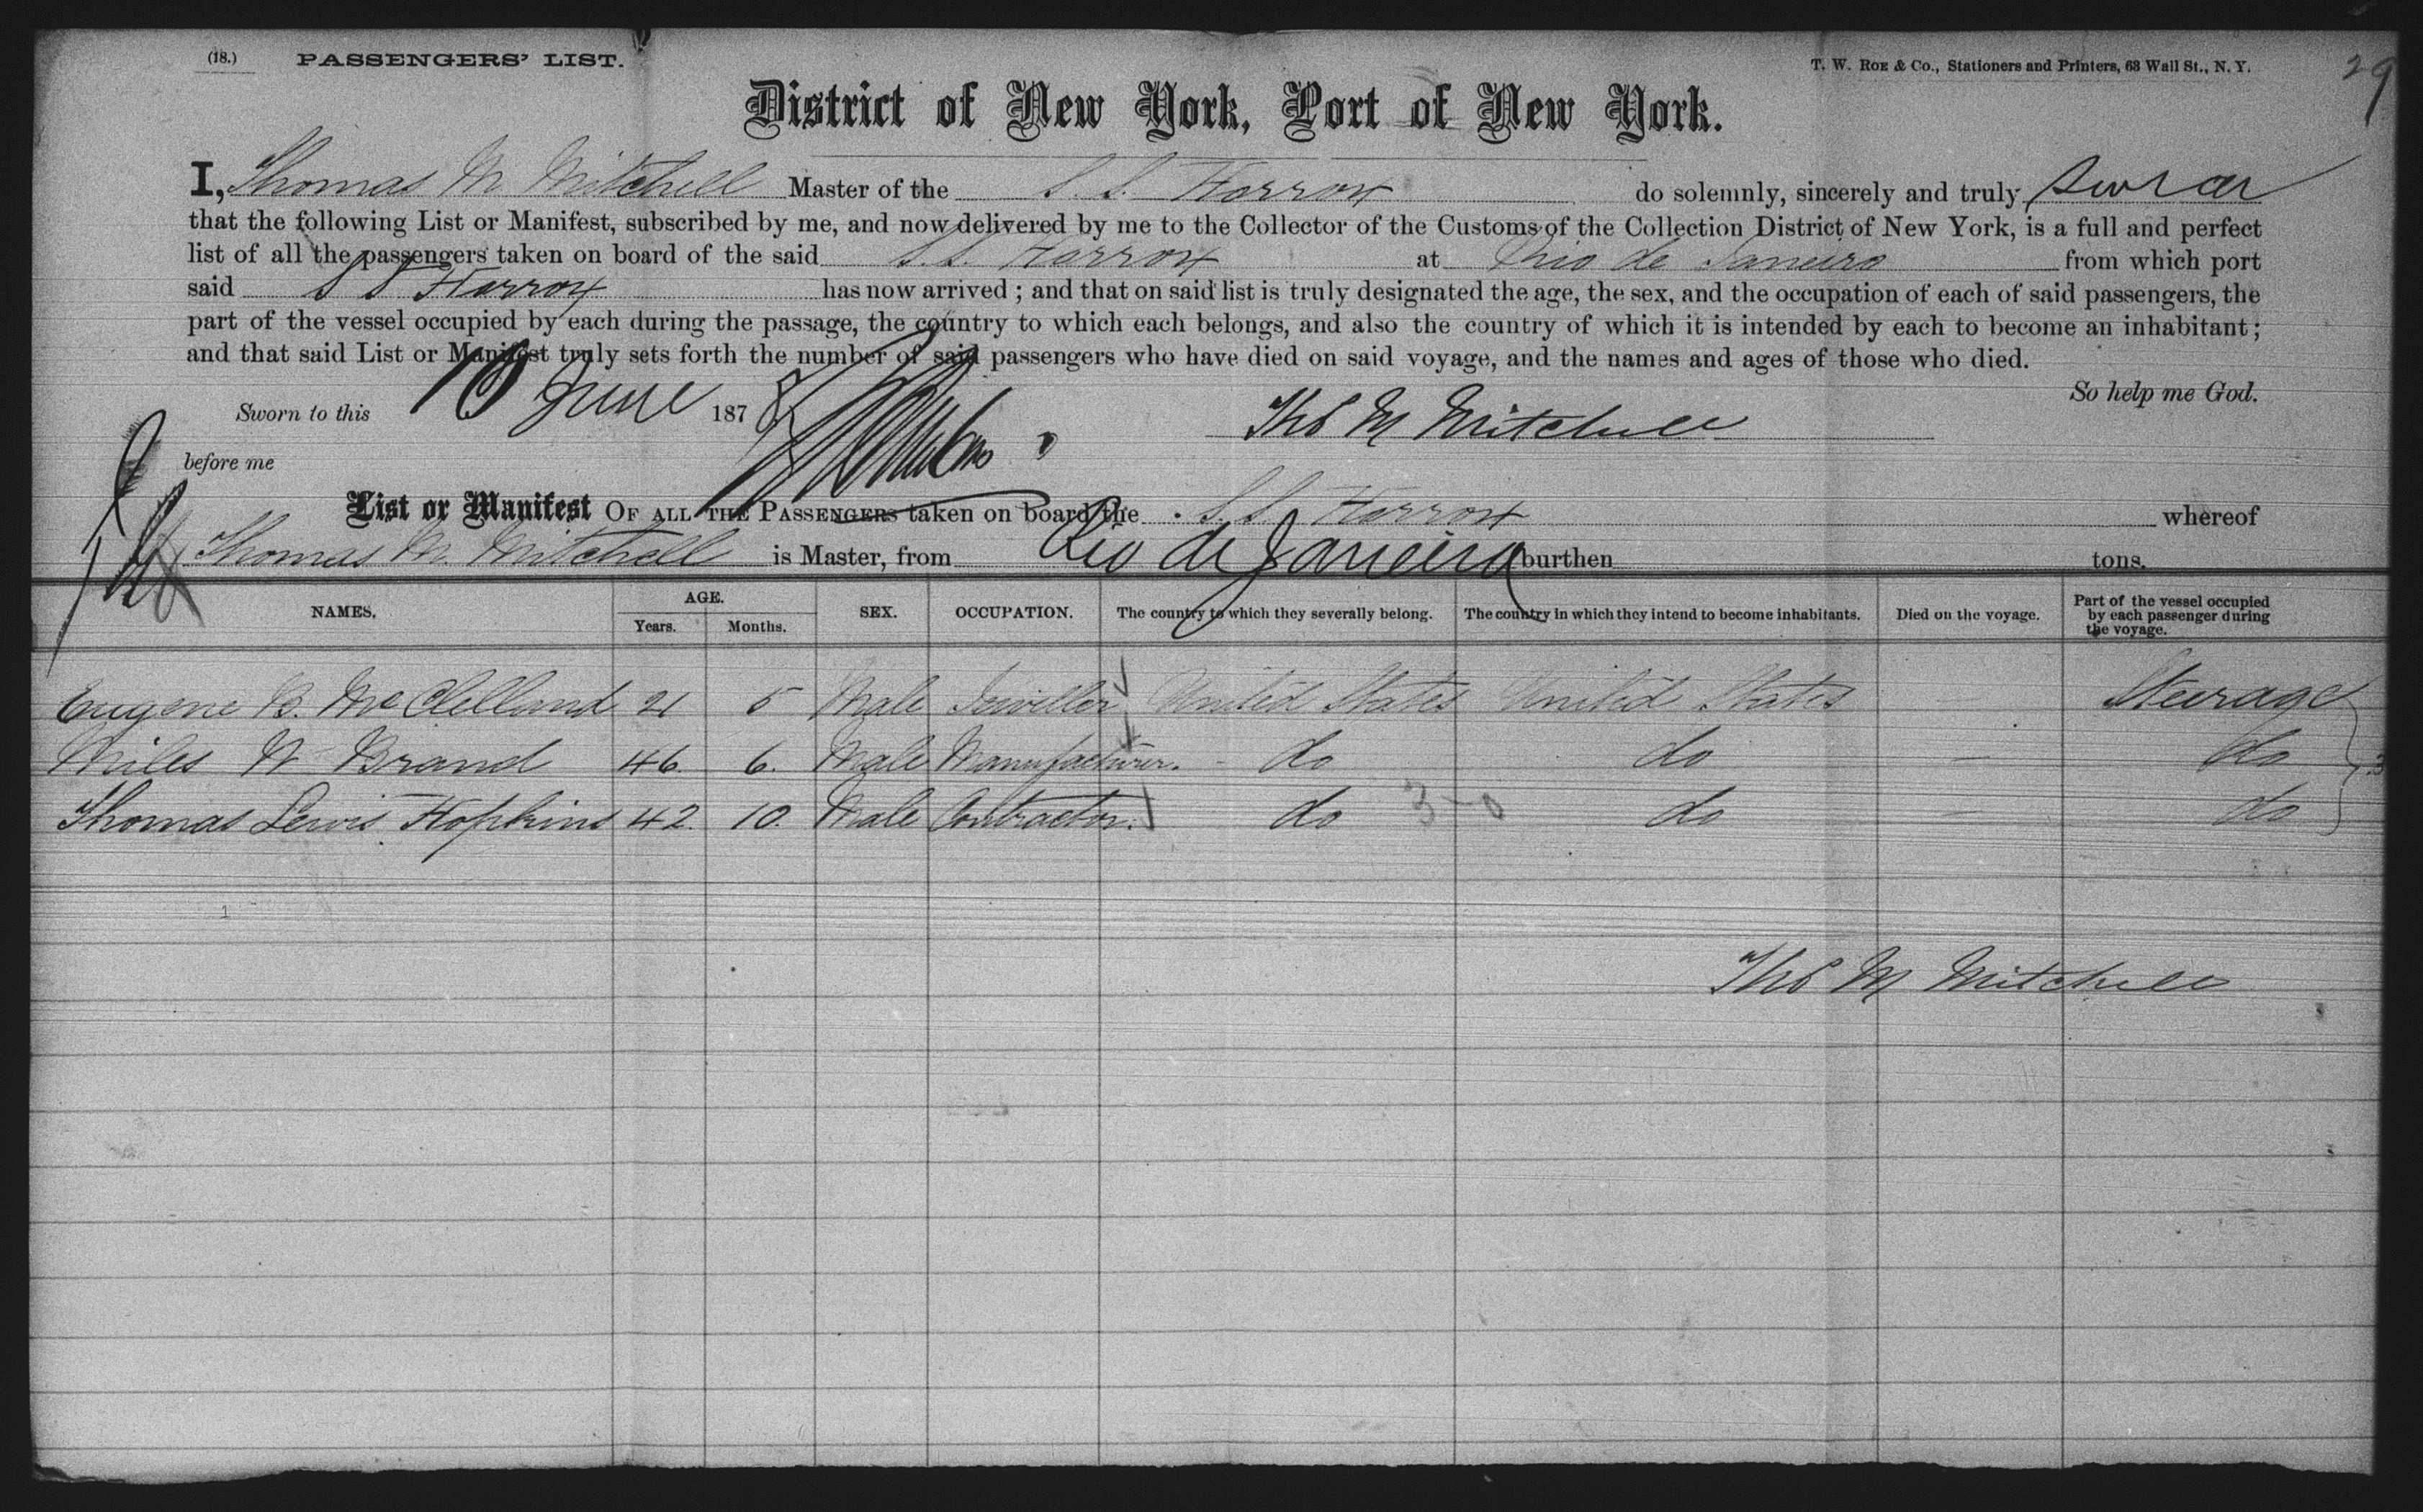 (18.) PASSENGERS' LIST. T. W. ROE & Co., Stationers and Printers, 63 Wall St., N. Y. 29
District of New York, Port of New York.
I, Thomas M Mitchell Master of the S. S. Horrox do solemnly, sincerely and truly swear
that the following List or Manifest, subscribed by me, and now delivered by me to the Collector of the Customs of the Collection District of New York, is a full and perfect
list of all the passengers taken on board of the said S.S. Horrox at Rio de Janeiro from which port
said S S Horrox has now arrived ; and that on said list is truly designated the age, the sex, and the occupation of each of said passengers, the
part of the vessel occupied by each during the passage, the country to which each belongs, and also the country of which it is intended by each to become an inhabitant ;
and that said List or Manifest truly sets forth the number of said passengers who have died on said voyage, and the names and ages of those who died.
So help me God.
Sworn to this 10 June 1878 Thos M Mitchell
before me
List or Manifest OF ALL THE PASSENGERS taken on board the S.S. Horrox whereof
Thomas M. Mitchell is Master, from Rio de Janeiro burthen tons.
NAMES. AGE. Years. Months. SEX. OCCUPATION. The country to which they severally belong. The country in which they intend to become inhabitants. Died on the voyage. Part of the vessel occupied by each passenger during the voyage.
Eugene B. McClelland 21 5 Male Jeweller United States United States Steerage
Miles N Brand 46. 6. Male Manufacturer. do do — do 3
Thomas Lewis Hopkins 42. 10. Male Contractor. do 3-0 do — do
Thos M Mitchell